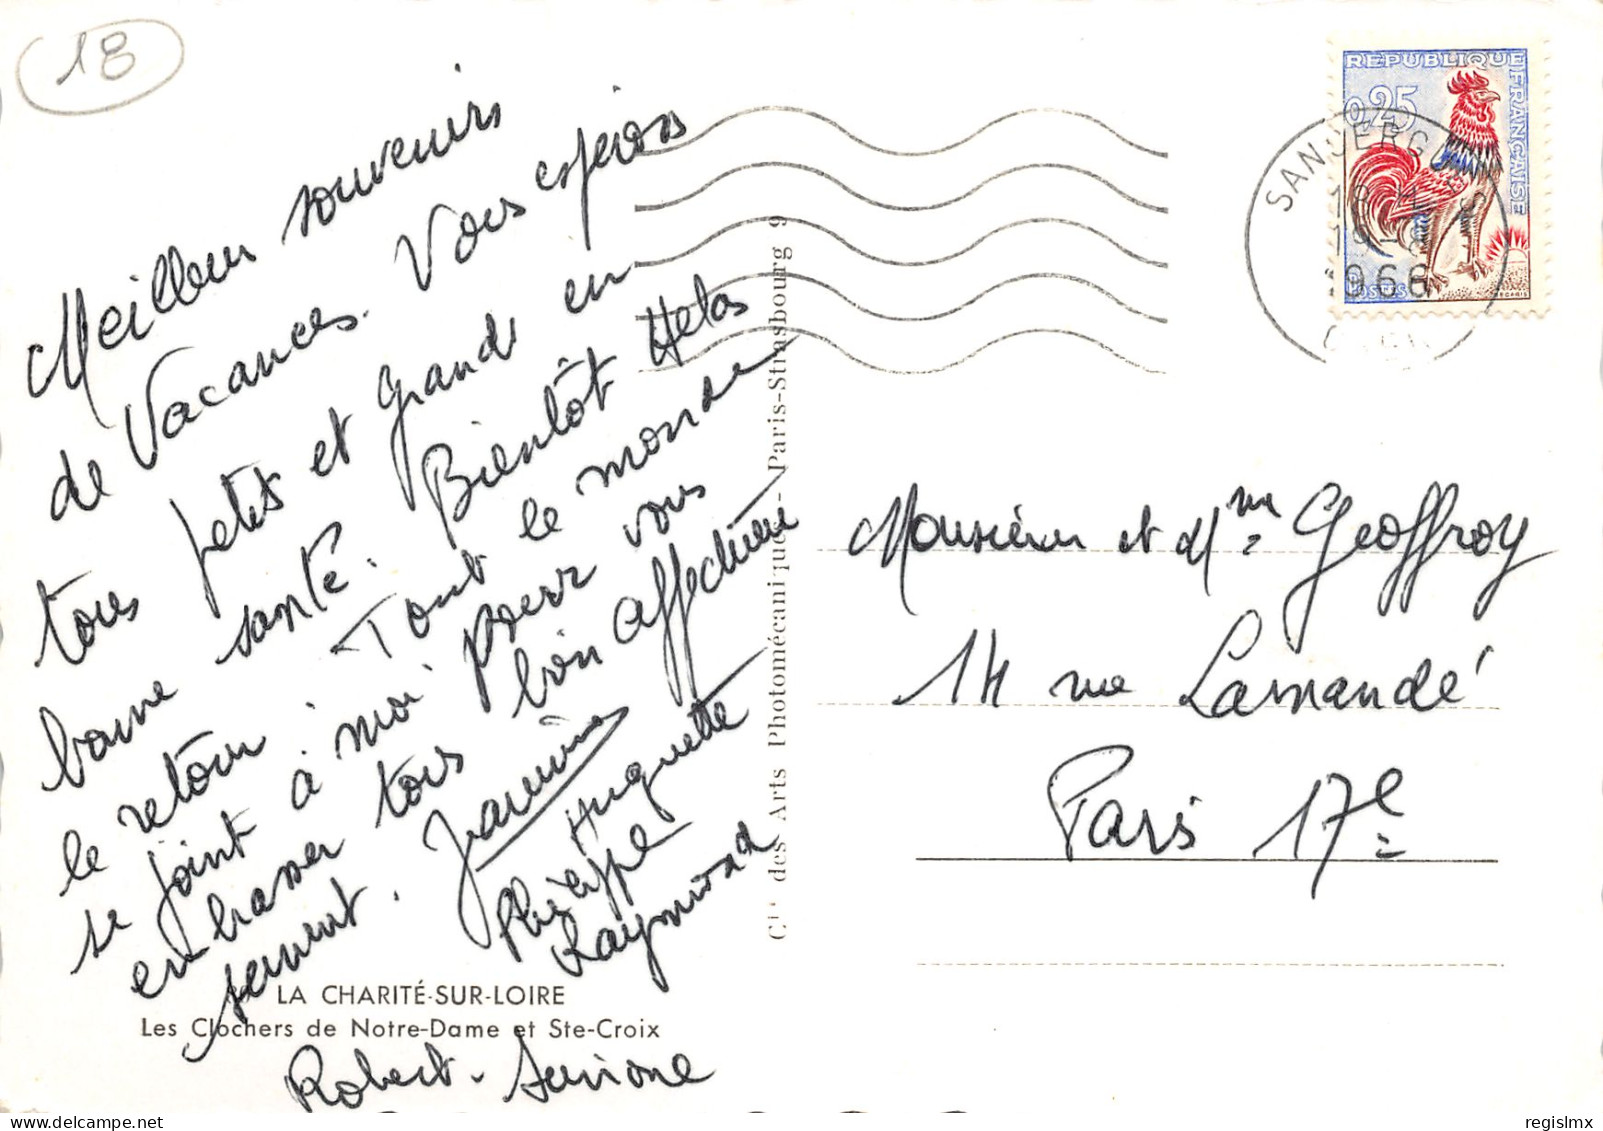 18
Meilleur souvenirs
de Vacances. Vous espérons
tous petits et Grand en
bonne santé. Bientôt Helas
le retour. Tout le monde
se joint à moi pour vous
embrasser tous bien affectueu
sement.
Jeannine
Huguette
Philippe
Raymond
Robert - Simone
LA CHARITÉ-SUR-LOIRE
Les Clochers de Notre-Dame et Ste-Croix
Cie des Arts Photomécaniques - Paris-Strasbourg 9
REPUBLIQUE FRANÇAISE
0,25
POSTES
DECARIS
SANCERGUES
19-8
1966
CHER
Monsieur et Mme Geoffroy
14 rue Lamandé
Paris 17e
regislmx